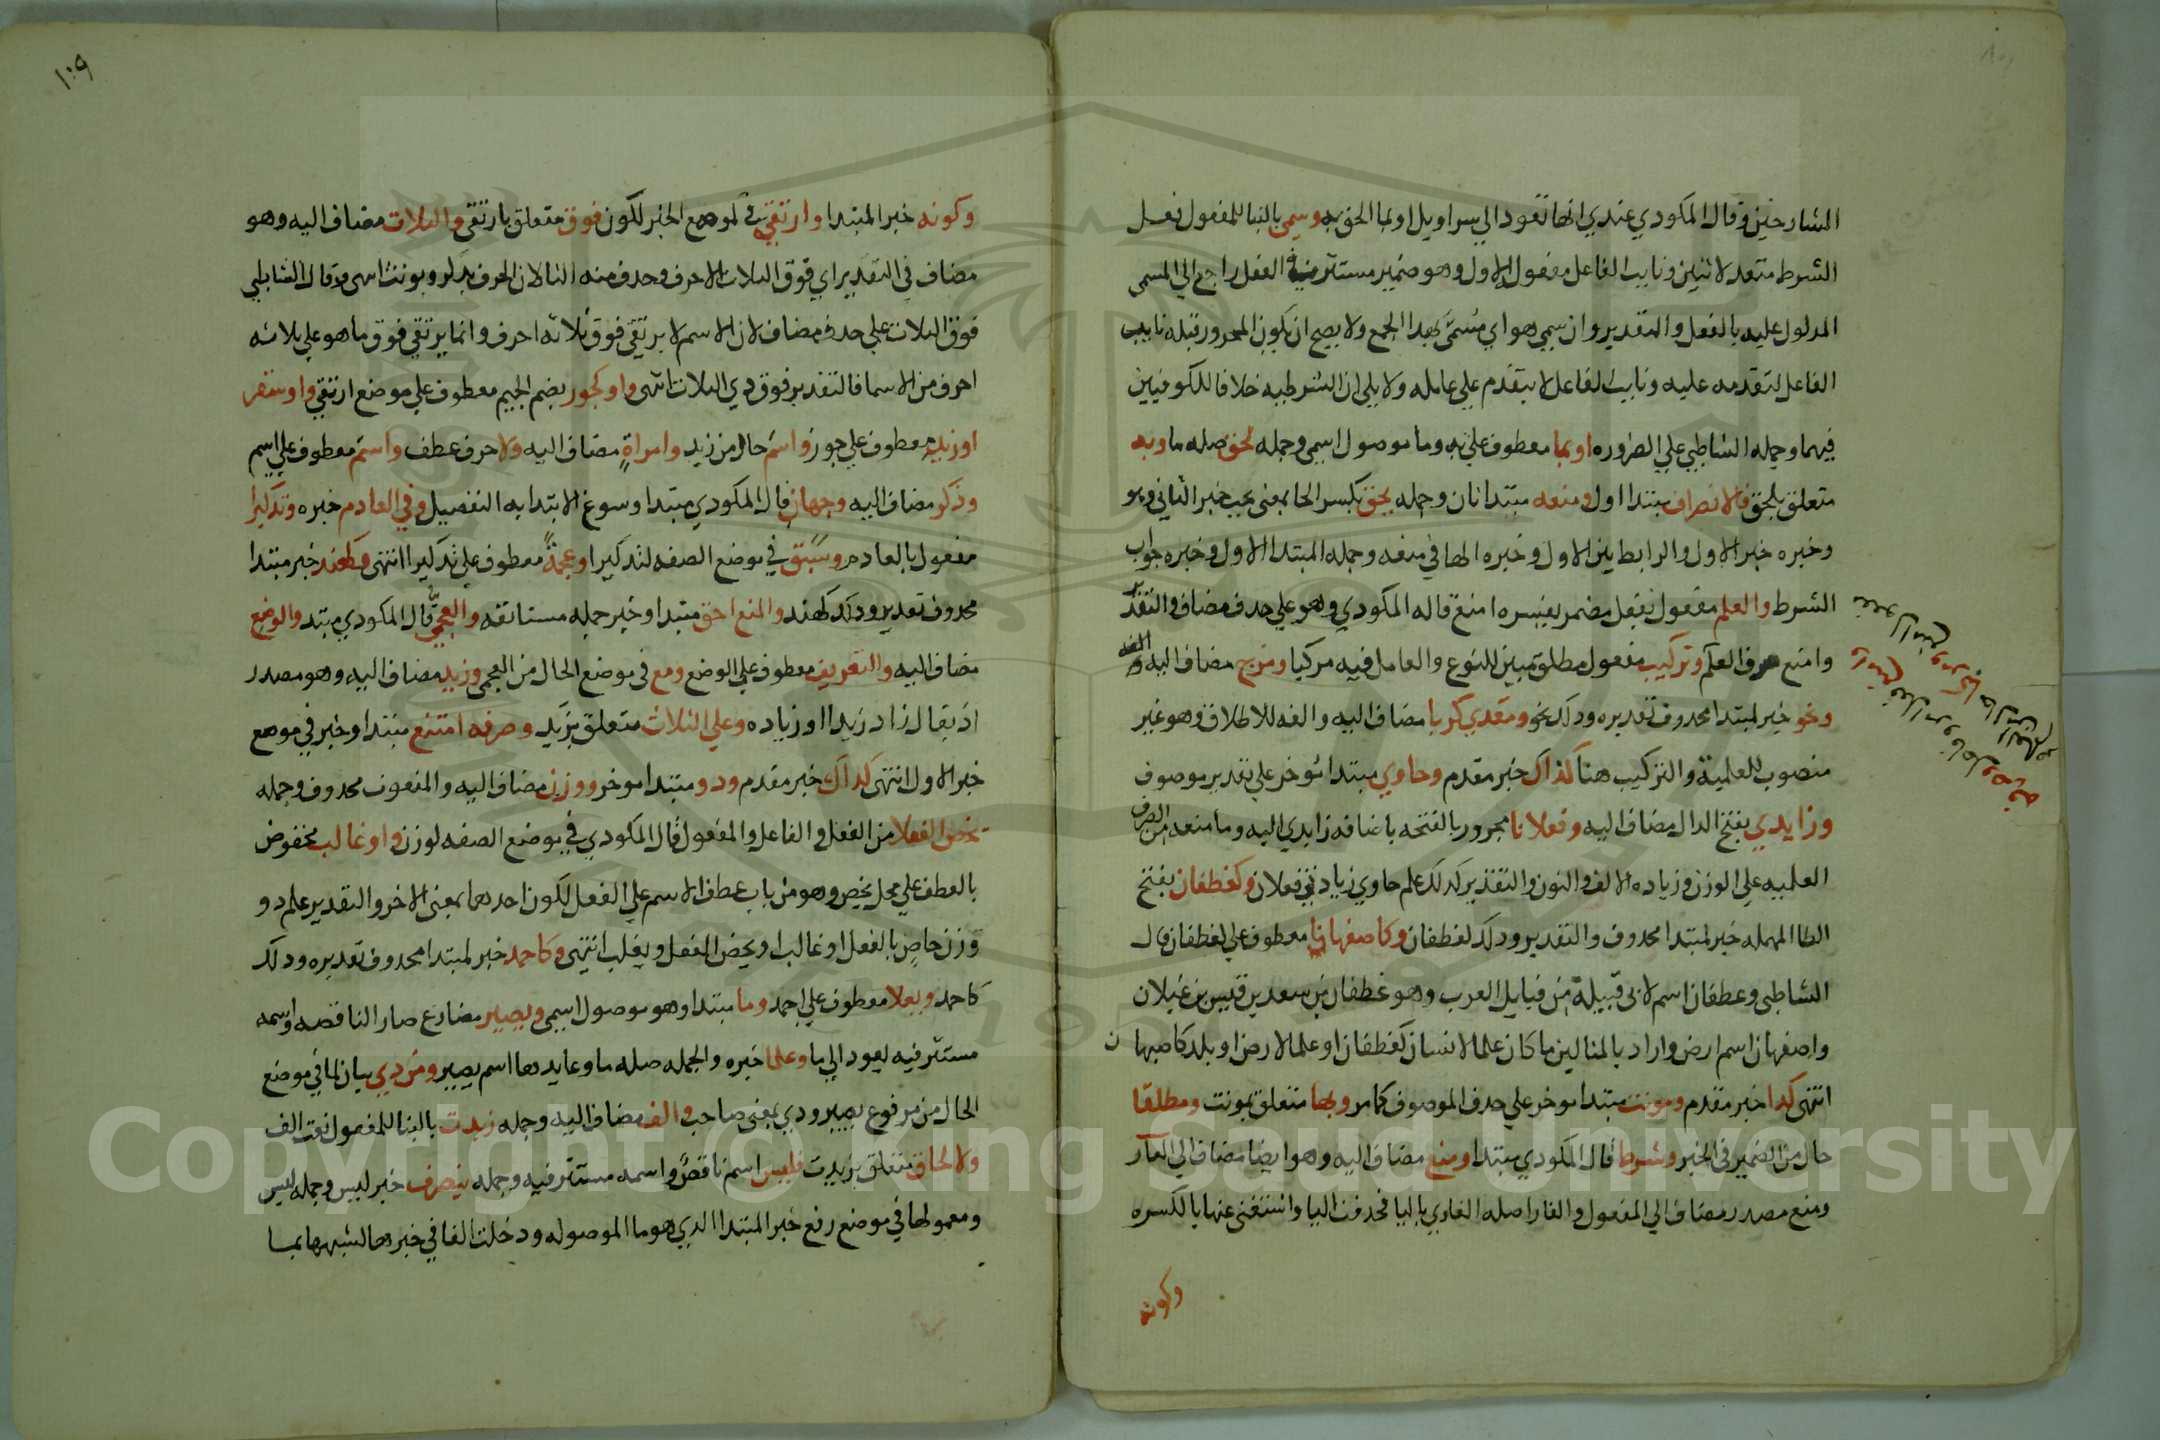 الشارحين وقال المكودي عندي انها تعود الي سراويل او بما الحق به وسمي بالبنا للمفعول فعل
الشرط متعد لاثنين ونايب الفاعل مفعول الاول وهو ضمير مستتر في الفعل راجع الي المسمي
المدلول عليه بالفعل والتقدير وان سمي هو اي مسمّى بهدا الجمع ولا يصح ان يكون المجرور قبله نايب
الفاعل لتقدمه عليه ونايب الفاعل لا يتقدم علي عامله ولا يلي ان الشرطيه خلافا للكوفيين
فيهما وحمله الشاطبي علي الضروره او بما معطوف علي به وما موصول اسمي وجمله لحق صله ما وبه
متعلق بلحق فالانصراف مبتدا اول ومنعه مبتدا ثان وجمله يحق بكسر الحا بمعنى يجب خبر الثاني وهو
وخبره خبر الاول والرابط بين الاول وخبره الها في منعه وجمله المبتدا الاول وخبره جواب
الشرط والعلم مفعول بفعل مضمر يفسره امنع قاله المكودي وهو علي حدف مضاف والتقدير
وامنع صرف العلم وتركيب مفعول مطلق مبين للنوع والعامل فيه مركبا ومزج مضاف اليه
ونحو خبر لمبتدا محدوف تقديره ودلك نحو ومعدي كربا مضاف اليه والفه للاطلاق وهو غير
منصوب للعلمية والتركيب هنا كداك خبر مقدم وحاوي مبتدا موخر علي تقدير موصوف
وزايدي بفتح الدال مضاف اليه وفعلانا مجرور بالفتحه باضافه زايدي اليه وما منعه من الصرف
العلميه علي الوزن وزياده الالف والنون والتقدير كدلك علم حاوي زيادتي فعلان وكغطفان بفتح
الطا المهمله خبر لمبتدا محدوف والتقدير ودلك كغطفان وكاصفهانا معطوف علي كغطفان قال
الشاطبي وغطفان اسم لابي قبيلة من قبايل العرب وهو غطفان بن سعد بن قيس بن غيلان
واصفهان اسم ارض واراد بالمثالين ما كان علما لانسان كغطفان او علما لارض او بلد كاصبهان
انتهى كدا خبر مقدم ومونث مبتدا موخر علي حدف الموصوف كما مر وبها متعلق بمونث ومطلقا
حال من الضمير في الخبر وشرط قال المكودي مبتدا ومنع مضاف اليه وهو ايضا مضاف الي العار
ومنع مصدر مضاف الي المفعول والعار اصله العاري باليا فحدفت اليا واستغنى عنها بالكسره
وكونه
١٠٩
وكونه خبر المبتدا وارتقي في موضع الخبر لكون فوق متعلق بارتقى والثلاث مضاف اليه وهو
مضاف في التقدير اي فوق الثلاث الاحرف وحدف منه التا لان الحرف يدكر ويونث انتهى وقال الشاطبي
فوق الثلاث علي حدف مضاف لان الاسم لا يرتقي فوق ثلاثه احرف وانما يرتقي فوق ما هو علي ثلاثه
احرف من الاسما فالتقدير فوق دي الثلاث انتهى او كجور بضم الجيم معطوف علي موضع ارتقي او سقر
او زيد معطوف علي جور واسم حال من زيد وامراة مضاف اليه ولا حرف عطف واسم معطوف علي اسم
ودكر مضاف اليه وجهان قال المكودي مبتدا وسوغ الابتدا به التفصيل وفي العادم خبره وتدكيرا
مفعول بالعادم وسبق في موضع الصفه لتدكيرا وعجمة معطوف علي تدكيرا انتهى كهند خبر مبتدا
محدوف تقديره ودلك كهند والمنع احق مبتدا وخبر جمله مستانفه والعجمي قال المكودي مبتدا والوضع
مضاف اليه والتعريف معطوف علي الوضع ومع في موضع الحال من العجمي وزيد مضاف اليه وهو مصدر
اد يقال زاد زيدا او زياده وعلي الثلاث متعلق بزيد وصرفه امتنع مبتدا وخبر في موضع
خبر الاول انتهى كداك خبر مقدم ودو مبتدا موخر ووزن مضاف اليه والمنعوت محدوف وجمله
يخص الفعلا من الفعل والفاعل والمفعول قال المكودي في موضع الصفه لوزن او غالب مخفوض
بالعطف علي محل يخص وهو من باب عطف الاسم علي الفعل لكون احدهما بمعنى الاخر والتقدير علم دو
وزن خاص بالفعل او غالب او يخص الفعل ويغلب انتهى وكاحمد خبر لمبتدا محدوف تقديره ودلك
كاحمد ويعلا معطوف علي احمد وما مبتدا وهو موصول اسمي ويصير مضارع صار الناقصه واسمه
مستتر فيه يعود الي ما وعلما خبره والجمله صله ما وعايدها اسم يصير ومن دي بيان لما في موضع
الحال من مرفوع يصير ودي بمعنى صاحب والف مضاف اليه وجمله زيدت بالبنا للمفعول نعت الف
ولالحاق متعلق بزيدت فليس اسم ناقص واسمه مستتر فيه وجمله ينصرف خبر ليس وجمله ليس
ومعمولها في موضع رفع خبر المبتدا الدي هو ما الموصوله ودخلت الفا في خبرها لشبهها بما
Copyright © King Saud University
1957